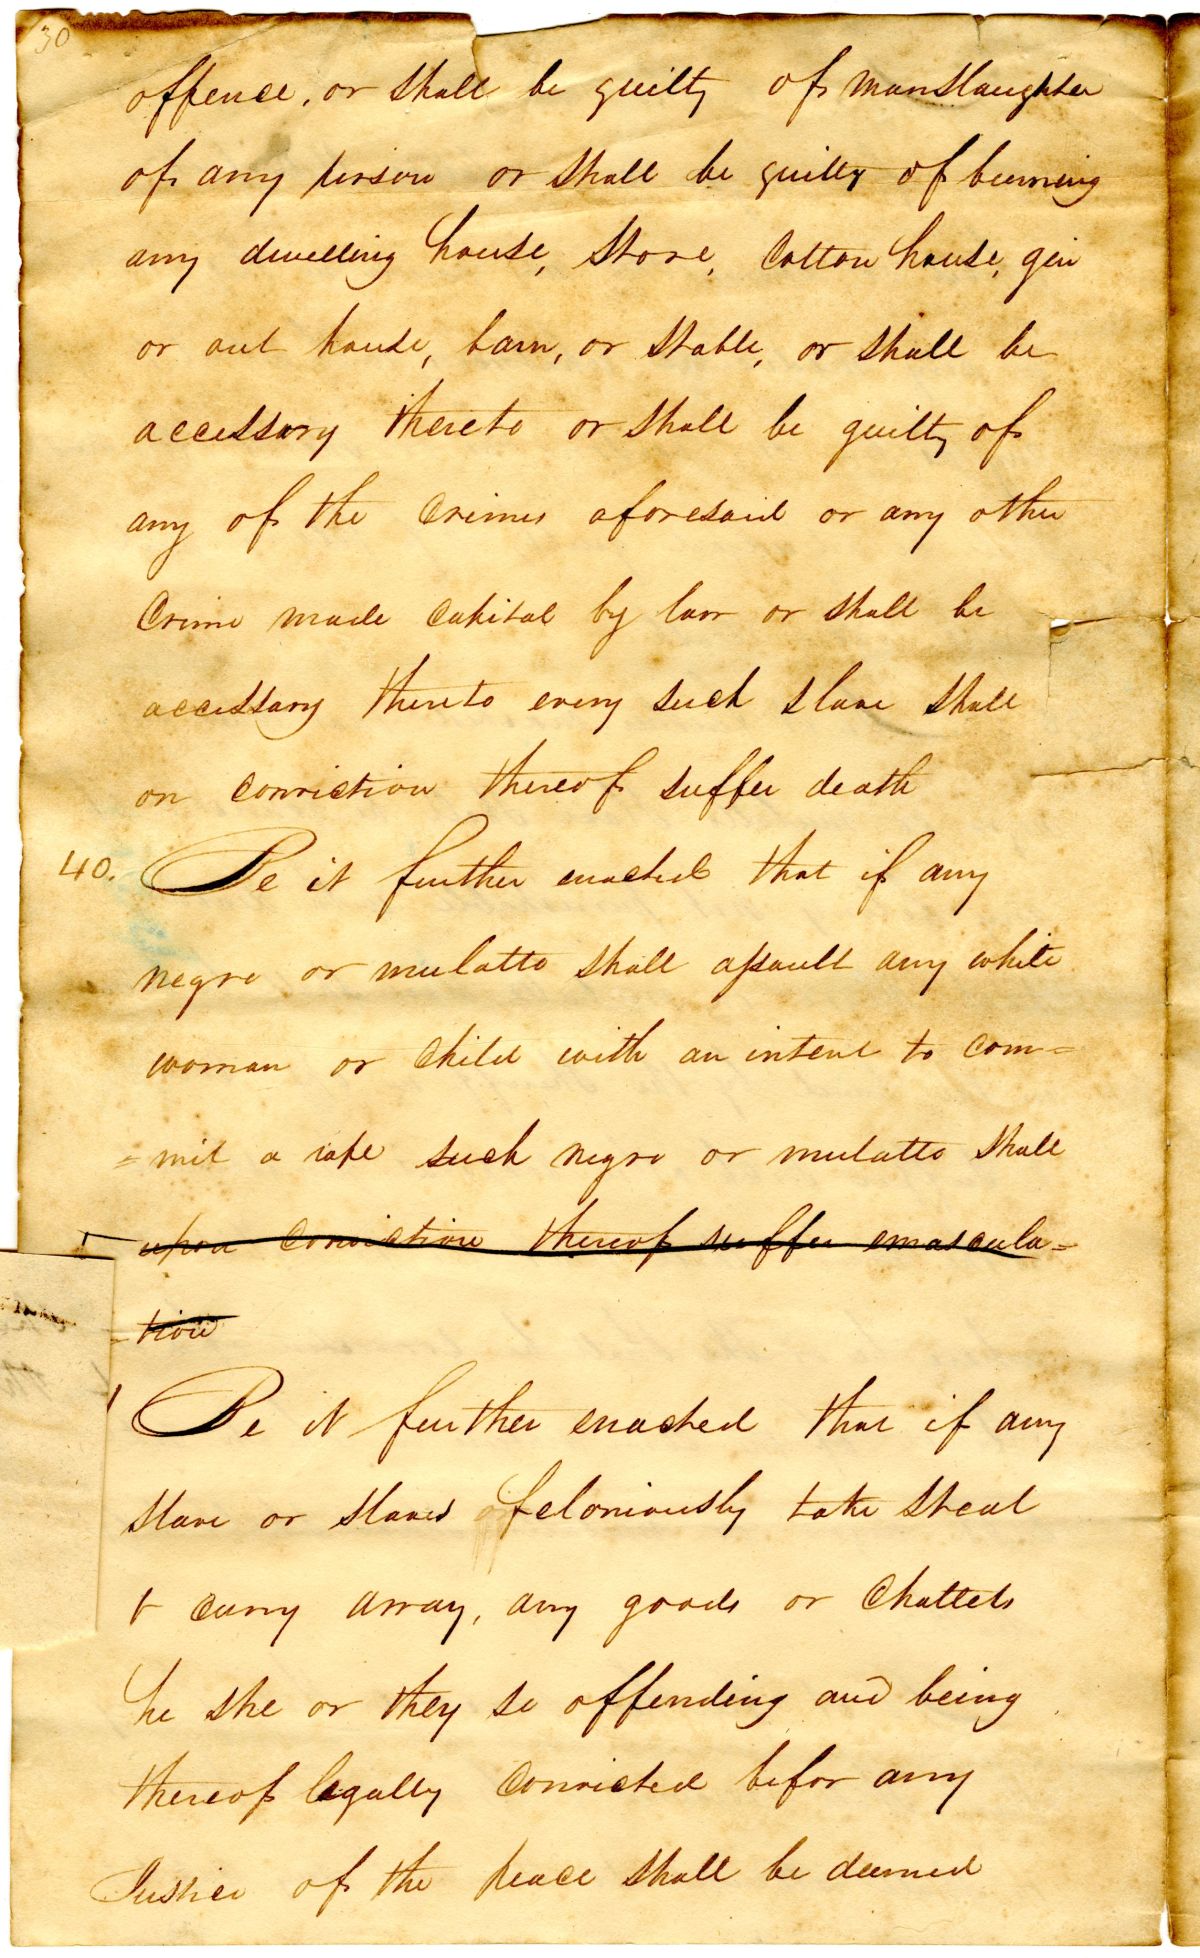 30
offence, or shall be guilty of manslaughter
of any person or shall be guilty of burning
any dwelling house, store, Cotton house, gin
or out house, barn, or stable, or shall be
accessary thereto or shall be guilty of
any of the Crimes aforesaid or any other
Crime made Capital by law or shall be
accessary thereto every such slave shall
on conviction thereof suffer death
40. Be it further enacted that if any
negro or mulatto shall assault any white
woman or Child with an intent to com=
=mit a rape such negro or mulatto shall
upon Conviction thereof suffer emascula=
=tion
Be it further enacted that if any
slave or slaves feloniously take steal
& carry away, any goods or Chattels
he she or they so offending and being
thereof legally Convicted befor any
Justice of the peace shall be deemed